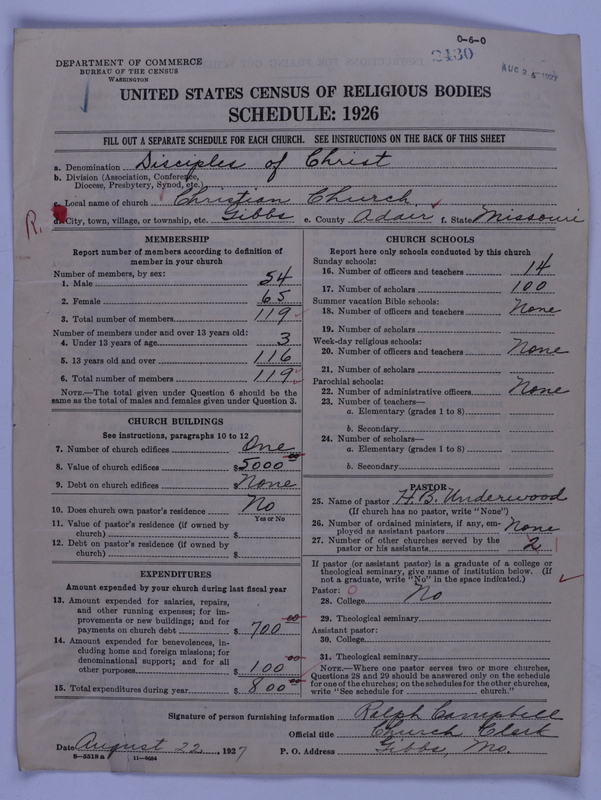 0-6-0
2430
AUG 26 1927
DEPARTMENT OF COMMERCE
BUREAU OF THE CENSUS
WASHINGTON
UNITED STATES CENSUS OF RELIGIOUS BODIES
SCHEDULE: 1926
FILL OUT A SEPARATE SCHEDULE FOR EACH CHURCH. SEE INSTRUCTIONS ON THE BACK OF THIS SHEET
a. Denomination Disciples of Christ
b. Division (Association, Conference, Diocese, Presbytery, Synod, etc.)
c. Local name of church Christian Church
R.
d. City, town, village, or township, etc. Gibbs e. County Adair f. State Missouri
MEMBERSHIP
Report number of members according to definition of
member in your church
Number of members, by sex:
1. Male 54
2. Female 65
3. Total number of members 119
Number of members under and over 13 years old:
4. Under 13 years of age 3
5. 13 years old and over 116
6. Total number of members 119
NOTE.—The total given under Question 6 should be
same as the total of males and females given under Question 3.
CHURCH BUILDINGS
See instructions, paragraphs 10 to 12
7. Number of church edifices One
8. Value of church edifices $5000 00
9. Debt on church edifices $None
10. Does church own pastor's residence No
Yes or No
11. Value of pastor's residence (if owned by
church) $
12. Debt on pastor's residence (if owned by
church) $
EXPENDITURES
Amount expended by your church during last fiscal year
13. Amount expended for salaries, repairs,
and other running expenses; for im-
provements or new buildings; and for
payments on church debt $ 700 00
14. Amount expended for benevolences, in-
cluding home and foreign missions; for
denominational support; and for all
other purposes $ 100 00
15. Total expenditures during year $ 800 00
CHURCH SCHOOLS
Report here only schools conducted by this church
Sunday schools:
16. Number of officers and teachers 14
17. Number of scholars 100
Summer vacation Bible schools:
18. Number of officers and teachers None
19. Number of scholars
Week-day religious schools:
20. Number of officers and teachers None
21. Number of scholars
Parochial schools:
22. Number of administrative officers None
23. Number of teachers—
a. Elementary (grades 1 to 8)
b. Secondary
24. Number of scholars—
a. Elementary (grades 1 to 8)
b. Secondary
PASTOR
25. Name of pastor H. B. Underwood
(If church has no pastor, write "None")
26. Number of ordained ministers, if any, em-
ployed as assistant pastors None
27. Number of other churches served by the
pastor or his assistants 2
If pastor (or assistant pastor) is a graduate of a college or
theological seminary, give name of institution below. (If
not a graduate, write "No" in the space indicated.)
Pastor: 0
28. College No
29. Theological seminary
Assistant pastor:
30. College
31. Theological seminary
NOTE.—Where one pastor serves two or more churches,
Questions 28 and 29 should be answered only on the schedule
for one of the churches; on the schedules for the other churches,
write "See schedule for church."
Signature of person furnishing information Ralph Campbell
Official title Church Clerk
Date August 22, 1927 P. O. Address Gibbs, Mo.
8-5518 a 11-9034